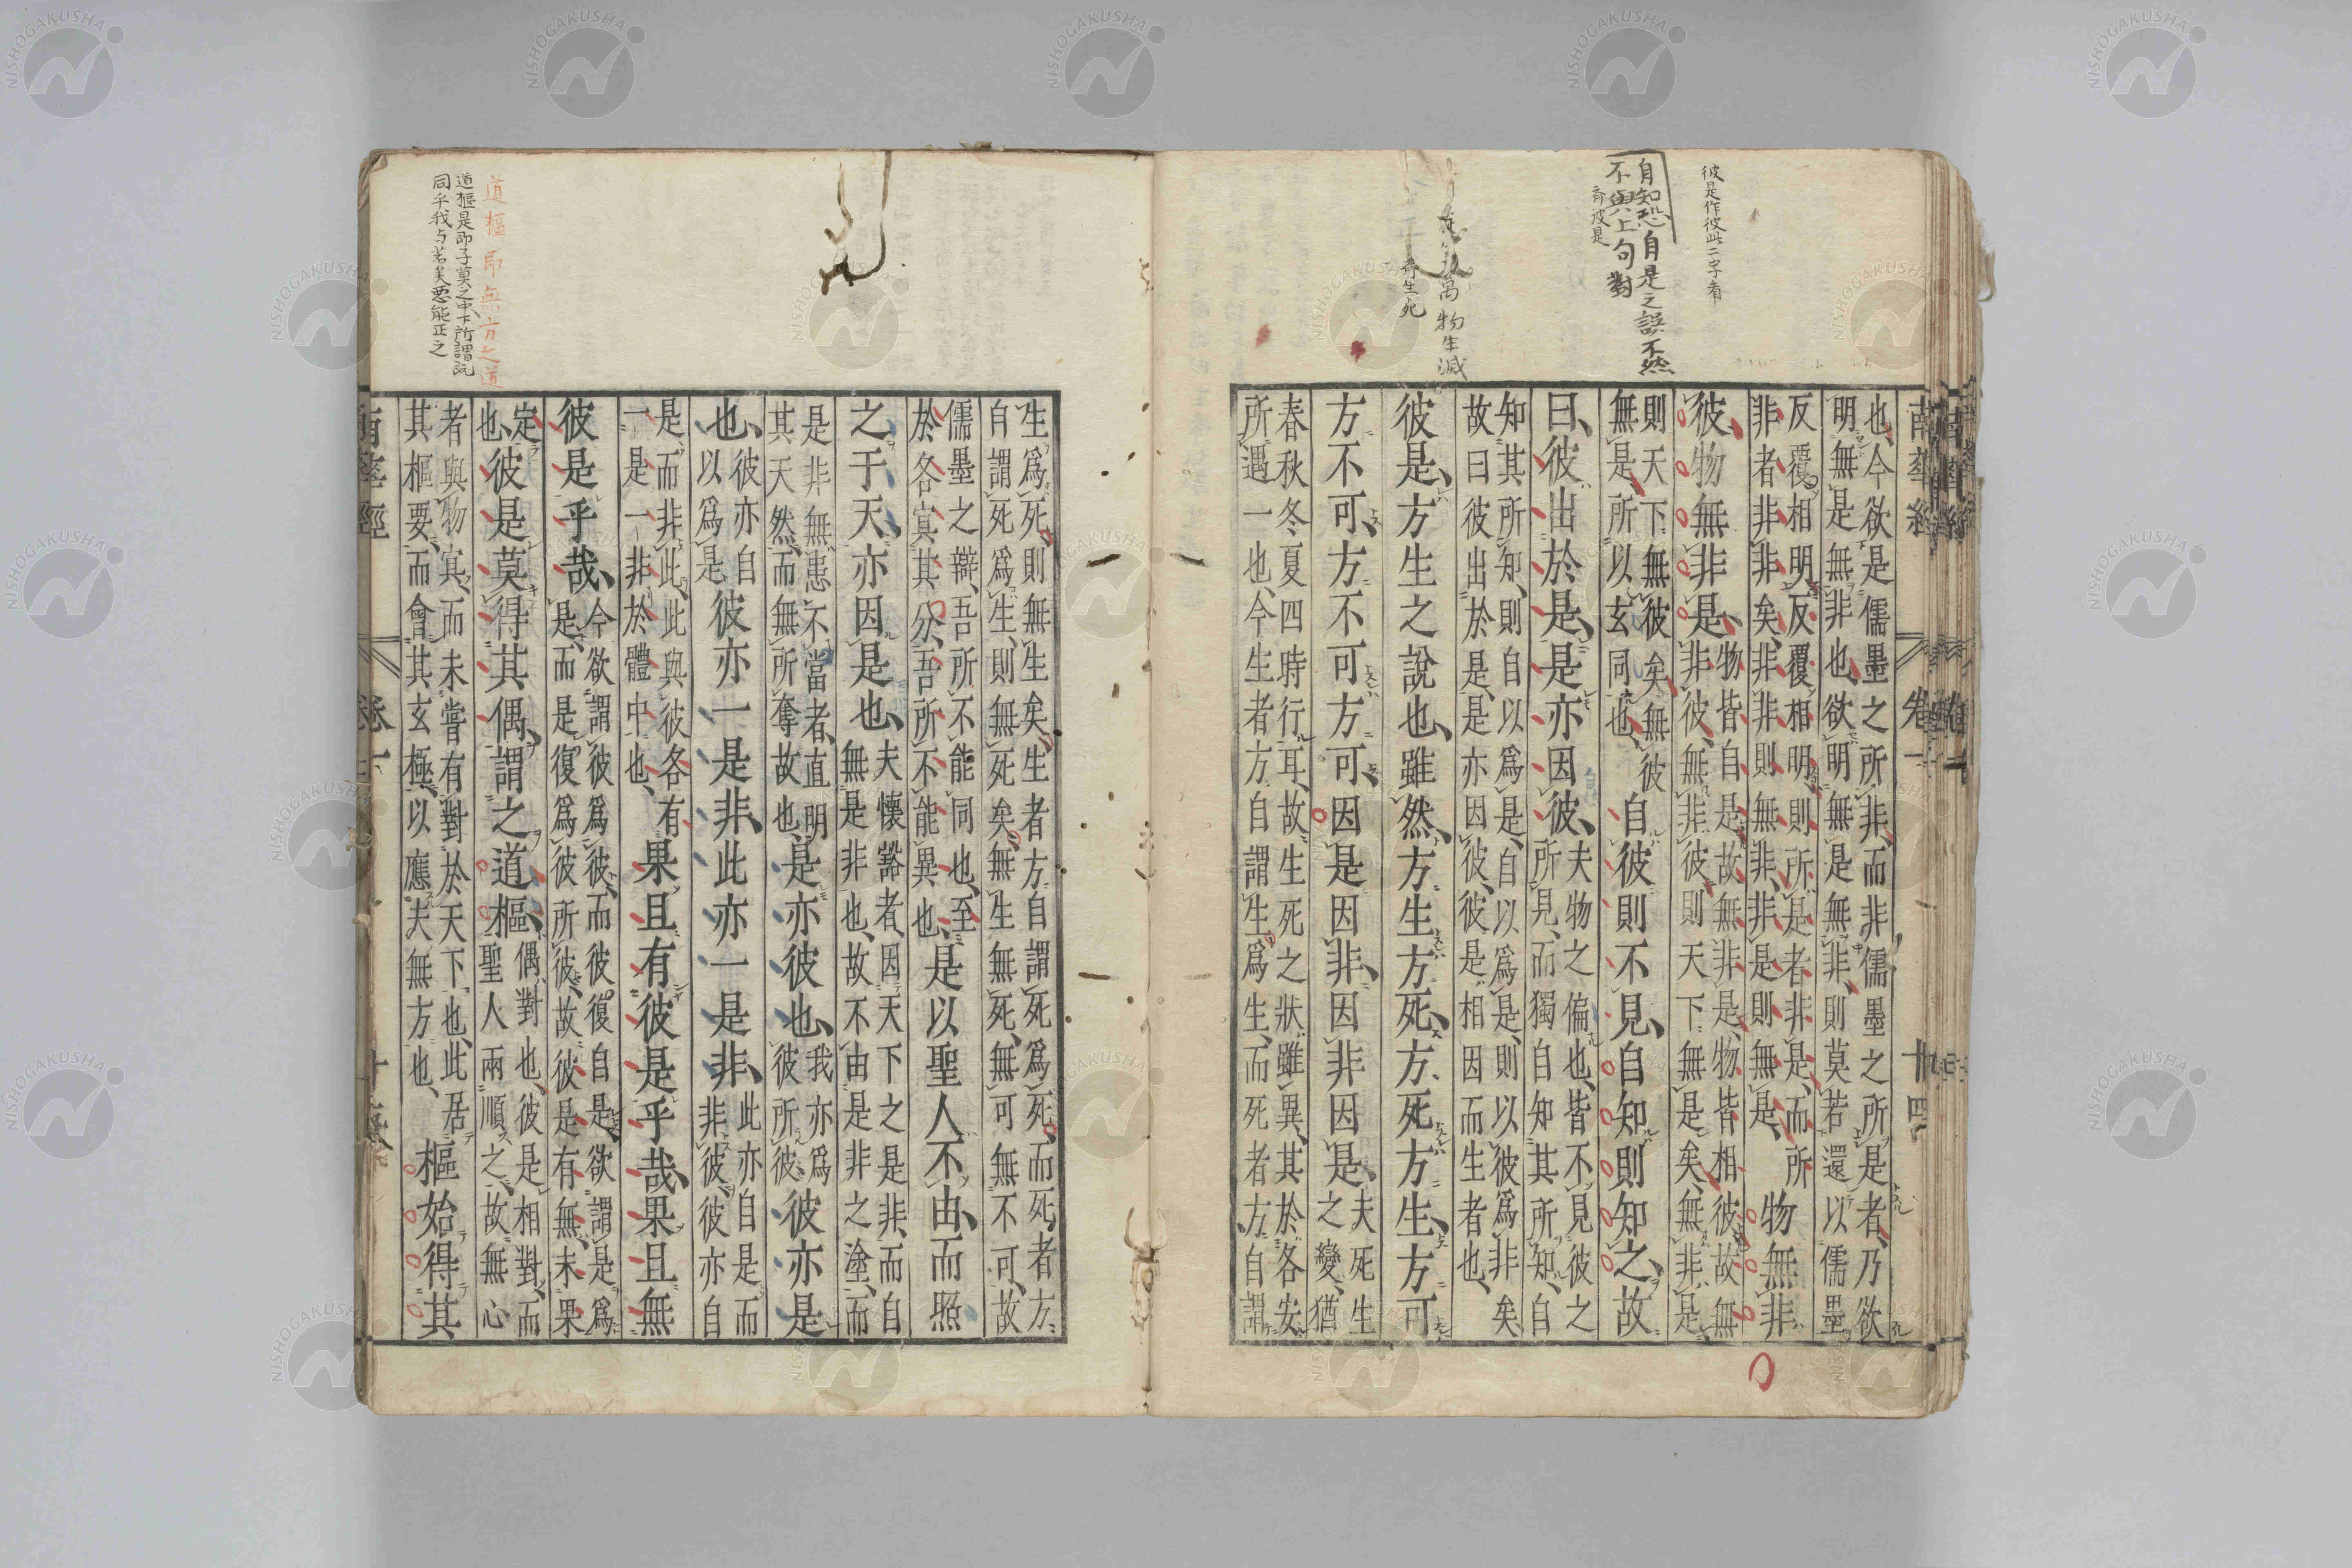 彼是作彼此二字看
自知恐自是之誤不然
不與上句對
齊彼是
萬物生滅
齊生死
南華經 卷一 十四
也今欲是儒墨之所非而非儒墨之所是者乃欲
明無是無非也欲明無是無非則莫若還以儒墨
反覆相明反覆相明則所是者非是而所
非者非非矣非非則無非非是則無是
物無非
彼物無非是
物皆自是故無非是物皆相彼故無
非彼無非彼則天下無是矣無非是
則天下無彼矣無彼
無是所以玄同也
自彼則不見自知則知之故
曰彼出於是是亦因彼
夫物之偏也皆不見彼之
所見而獨自知其所知自
知其所知則自以爲是自以爲是則以彼爲非矣
故曰彼出於是是亦因彼彼是相因而生者也
彼是方生之說也雖然方生方死方死方生方可
方不可方不可方可因是因非因非因是
夫死生
之變猶
春秋冬夏四時行耳故生死之狀雖異其於各安
所遇一也今生者方自謂生爲生而死者方自謂
道樞即無方之道
道樞是即子莫之中下所謂既
同乎我与若矣惡能正之
生爲死則無生矣生者方自謂死爲死而死者方
自謂死爲生則無死矣無生無死無可無不可故
儒墨之辯吾所不能同也至
於各冥其分吾所不能異也
是以聖人不由而照
之于天亦因是也
夫懷豁者因天下之是非而自
無是非也故不由是非之塗而
是非無患不當者直明
其天然而無所奪故也
是亦彼也
我亦爲
彼所彼
彼亦是
也
彼亦自
以爲是
彼亦一是非此亦一是非
此亦自是而
非彼彼亦自
是而非此此與彼各有
一是一非於體中也
果且有彼是乎哉果且無
彼是乎哉
今欲謂彼爲彼而彼復自是欲謂是爲
是而是復爲彼所彼故彼是有無未果
定
也
彼是莫得其偶謂之道樞
偶對也彼是相對而
聖人兩順之故無心
者與物冥而未嘗有對於天下也此居
其樞要而會其玄極以應夫無方也
樞始得其
南華經 卷一